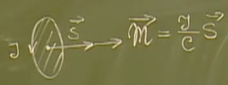 J S⃗ M⃗ = J/c S⃗